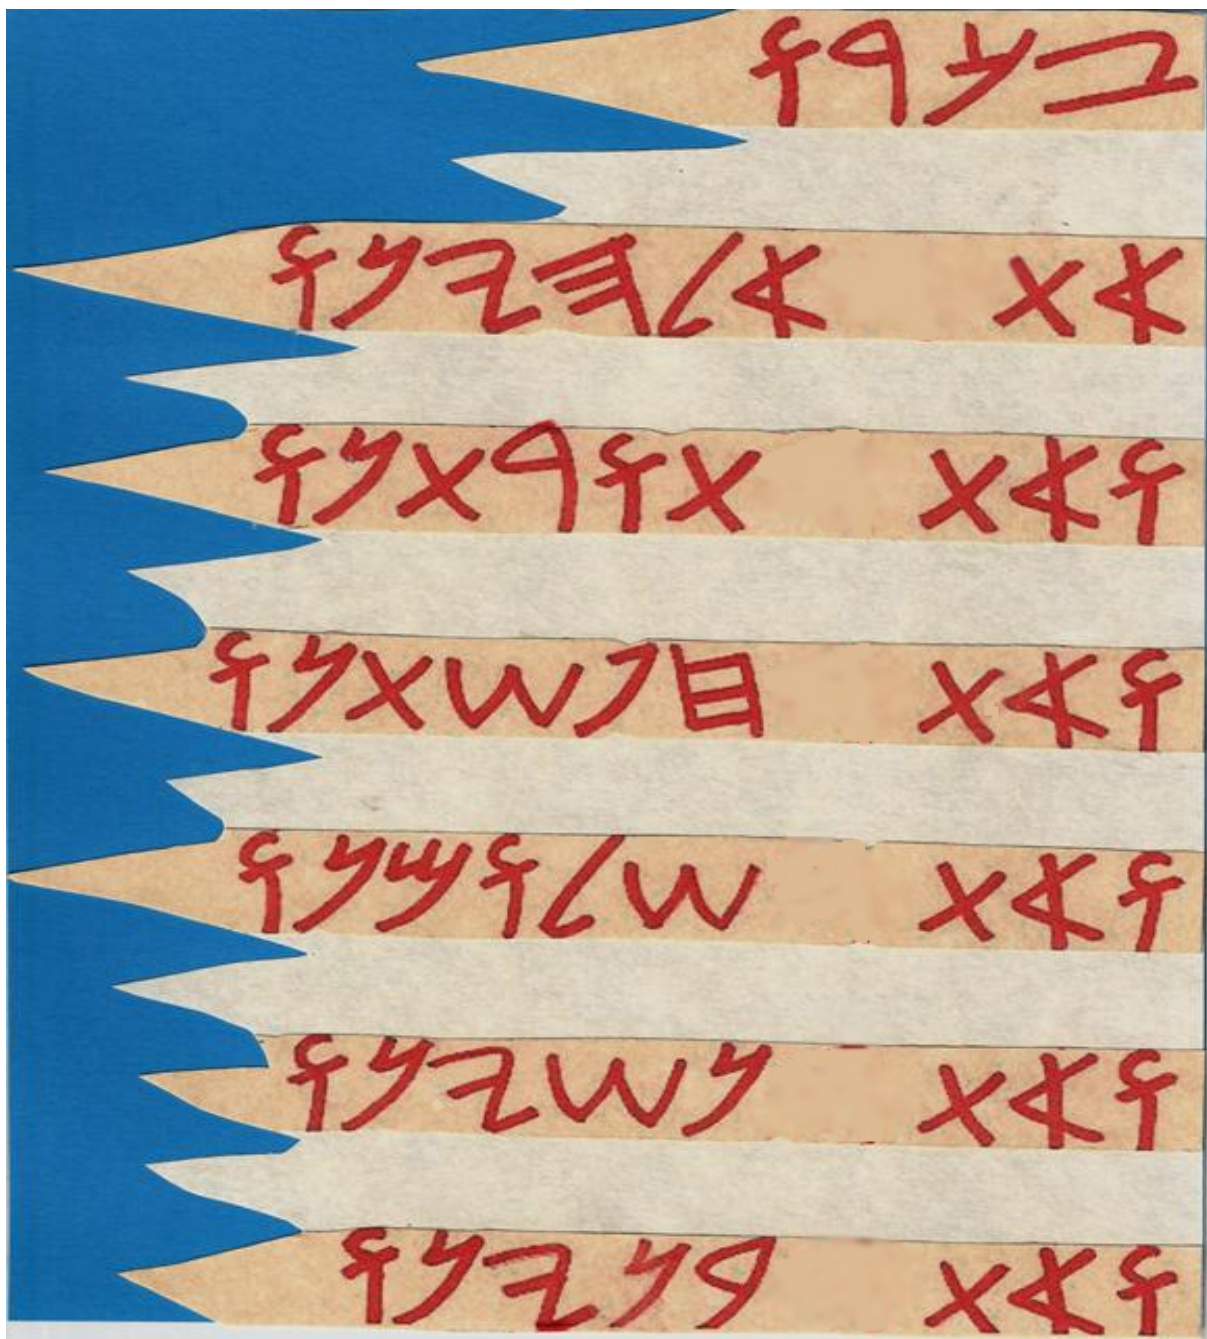 𐤆𐤊𐤓𐤅
𐤀𐤕 𐤀𐤋𐤄𐤉𐤍𐤅
𐤅𐤀𐤕 𐤕𐤅𐤓𐤕𐤍𐤅
𐤅𐤀𐤕 𐤇𐤐𐤔𐤕𐤍𐤅
𐤅𐤀𐤕 𐤔𐤋𐤅𐤌𐤍𐤅
𐤅𐤀𐤕 𐤍𐤔𐤉𐤍𐤅
𐤅𐤀𐤕 𐤁𐤍𐤉𐤍𐤅